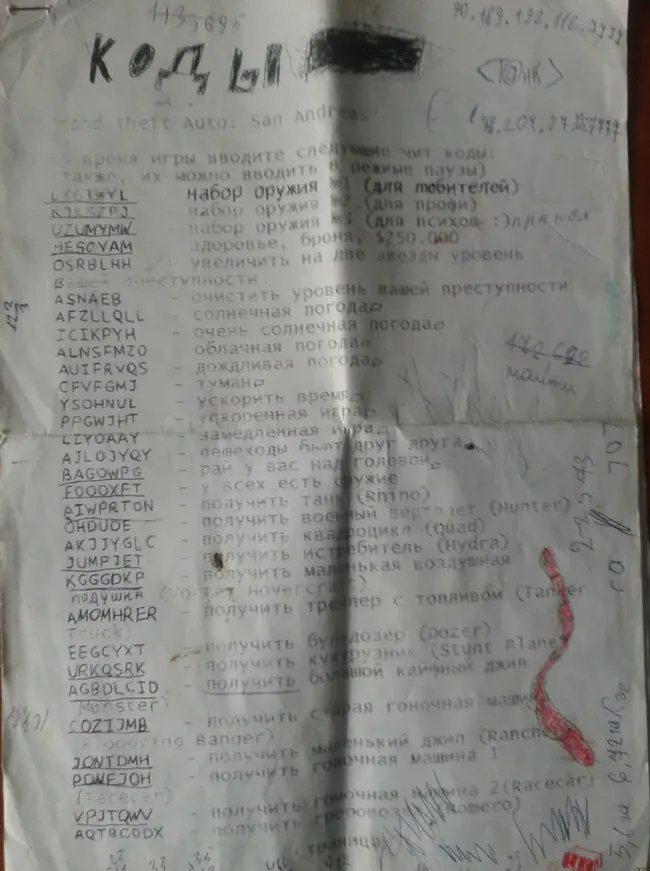 113 5695
90.189.192.112.7777
КОДЫ
<ТАНК>
Grand Theft Auto: San Andreas
во время игры вводите следующие чит коды:
также, их можно вводить в режиме паузы)
LXGIWYL - набор оружия №1 (для любителей)
KJKSZPJ - набор оружия №2 (для профи)
UZUMYMW - набор оружия №3 (для психов :) прикол
HESOYAM - здоровье, броня, $250.000
OSRBLHH - увеличить на две звезды уровень
вашей преступности
ASNAEB - очистить уровень вашей преступности
AFZLLQLL - солнечная погода
ICIKPYH - очень солнечная погода
ALNSFMZO - облачная погода
AUIFRVQS - дождливая погода
CFVFGMJ - туман
YSOHNUL - ускорить время
PPGWJHT - ускоренная игра
LIYOAAY - замедленная игра
AJLOJYQY - пешеходы бьют друг друга
BAGOWPG - рай у вас над головой
FOOOXFT - у всех есть оружие
AIWPRTON - получить танк (Rhino)
OHDUDE - получить военый вертолет (Hunter)
AKJJYGLC - получить квадроцикл (Quad)
JUMPJET - получить истребитель (Hydra)
KGGGDKP - получить маленькая воздушная
подушка (Vortex Hovercraft)
AMOMHRER - получить трейлер с топливом (Tanker
Truck)
EEGCYXT - получить бульдозер (Dozer)
URKQSRK - получить кукурузник (Stunt Plane)
AGBDLCID - получить большой кайфный джип
(Monster)
CQZIJMB - получить старая гоночная машина
(Bloodring Banger)
JQNTDMH - получить маленький джип (Rancher)
PDNEJOH - получить гоночная машина 1
(Racecar)
VPJTQWV - получить гоночная машина 2(Racecar)
AQTBCODX - получить гробовоз (Romero)
страница
найти